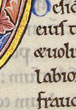 ochio
eius t
euolu
labio
frau